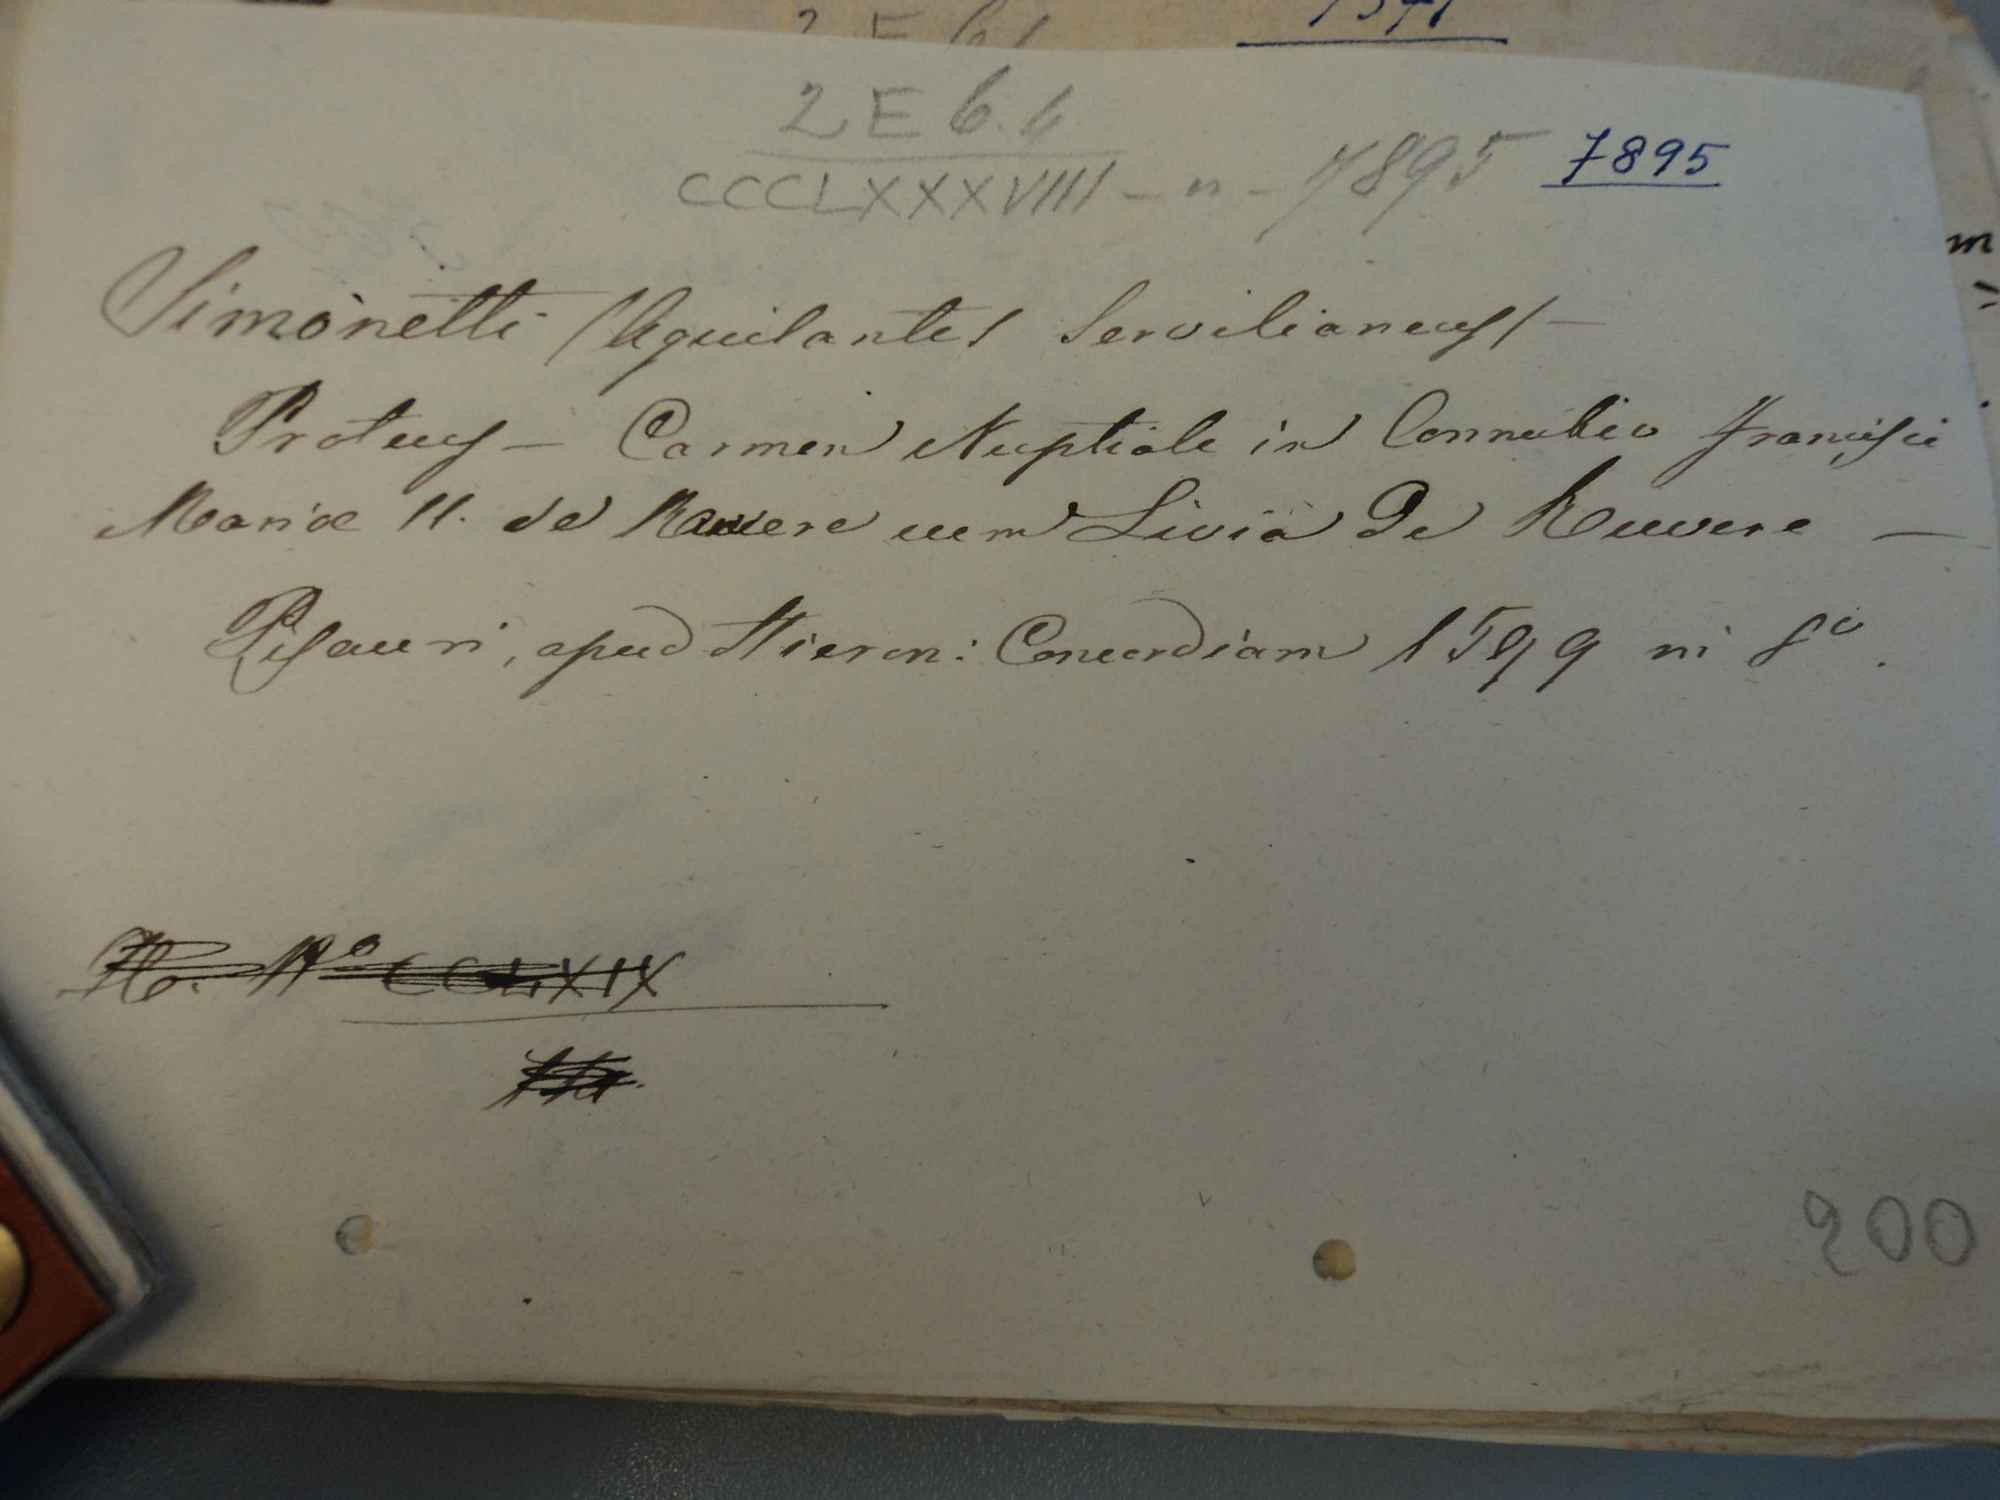 2 E 6.6
CCCLXXXVIII - n - 7895 7895
Simonetti (Aquilantes Servilianeus) -
Proteus - Carmen Nuptiale in Connubio Francisci
Mariæ II. de Ruvere cum Livia De Ruvere -
Pisauri, apud Hieron: Concordiam 1599 in 8º.
H. Nº CCLXIX
200